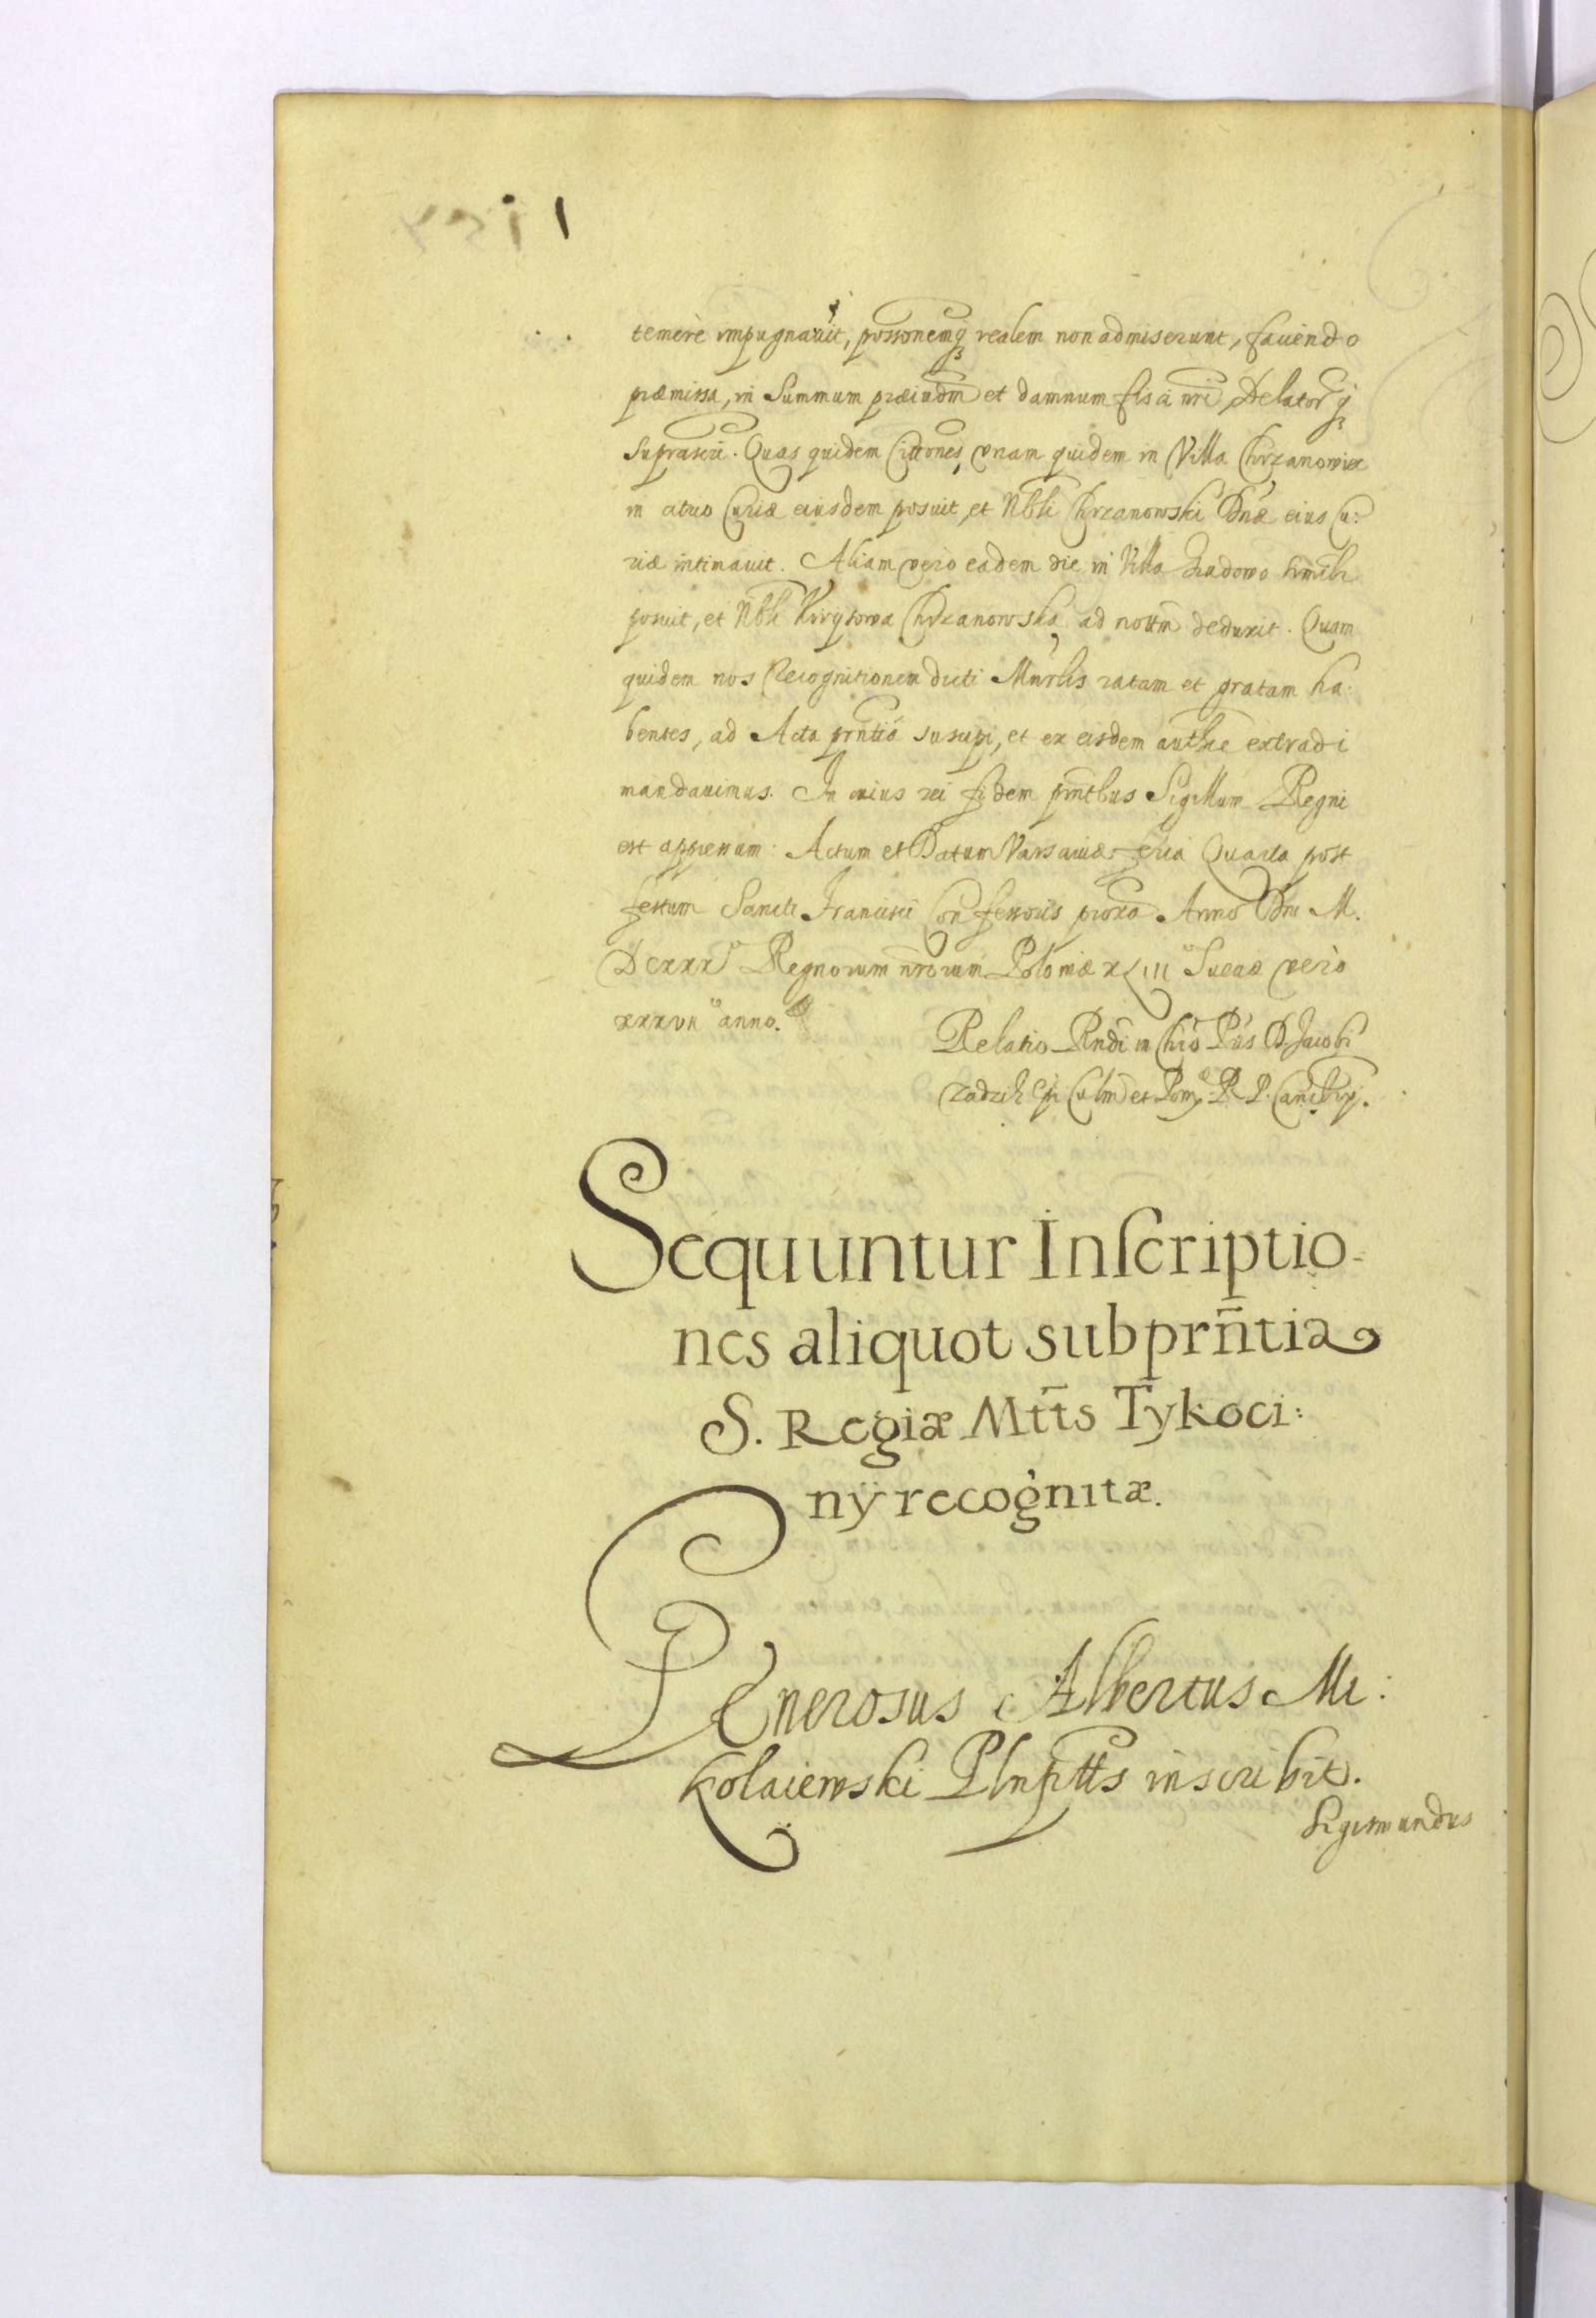 temerè impugnauit, possonemq realem non admiserunt, fauendo
præmissa, in Summum præiudm et damnum fisci nri, Delatorq
Suprascri. Quas quidem Cittones, vnam quidem in Villa Chrzanowiex
in atrio Curiæ eiusdem posuit, et Nbli Chrzanowski Dnæ eius Cu:
riæ intimauit. Aliam vero eadem die in Villa simili
posuit, et Nbli Krzysowa Chrzanowska ad nottm deduxit. Quam
quidem nos Recognitionem dicti Mnrlis ratam et gratam ha:
bentes, ad Acta prntia suscipi, et ex eisdem authce extradi
mandauimus. In cuius rei fidem prntbus Sigillum Regni
est appressum: Actum et Datum Varsauiæ feria Quarta post
festum Sancti Francisci Confessoris proxa Anno Dni M.
DCXXX Regnorum nrorum Poloniæ XLIII Sueciæ verò
XXXVII anno.
Relatio Rndi in Chro Pris D. Jacobi
Zadzik Epi Culm et Pom. R P. Cancrij.
Sequuntur Inscriptio-
nes aliquot sub prñtia
S. Regiæ Mtts Tykoci:
nÿ recognitæ.
Generosus Albertus Mi:
kolaiewski Plnpttts inscribit.
Sigismundus